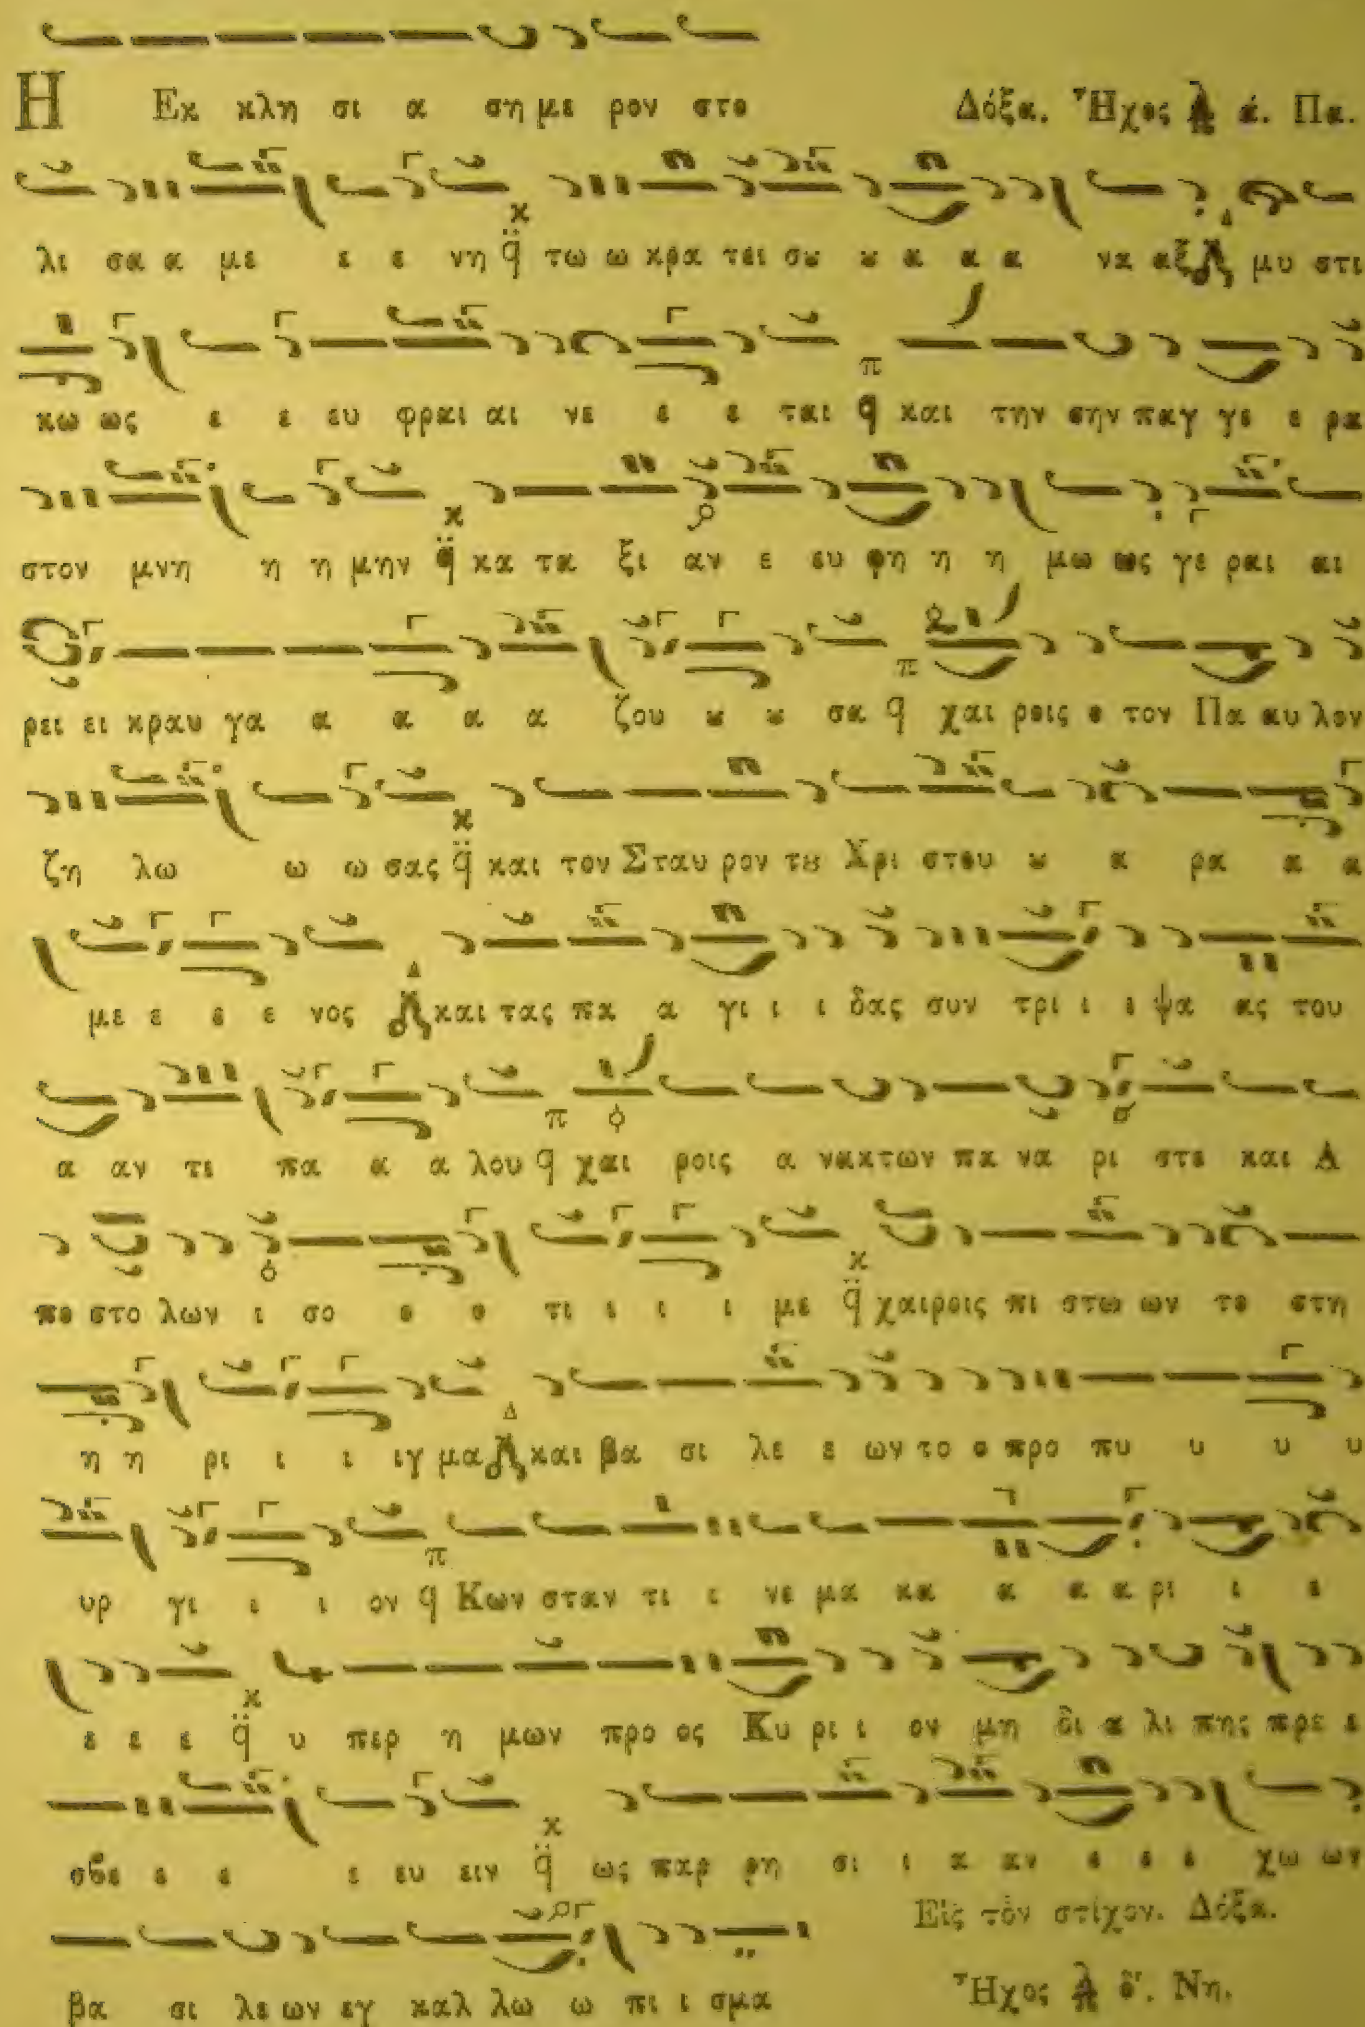 Η Εκ κλη σι α ση με ρον στο Δόξα. Ἦχος ά. Πα.
λι σα α με ε ε νη τω ω κρα τει σȣ ȣ α α α να αξ μυ στι
κω ως ε ε ευ φραι αι νε ε ε ται και την σην παγ γε ε ρα
στον μνη η η μην κα τα ξι αν ε ευ φη η η μω ως γε ραι αι
ρει ει κραυ γα α α α α ζου ȣ ȣ σα χαι ροις ο τον Πα αυ λον
ζη λω ω ω σας και τον Σταυ ρον τȣ Χρι στου ȣ α ρα α α
με ε ε ε νος και τας πα α γι ι ι δας συν τρι ι ι ψα ας του
α αν τι πα α α λου χαι ροις α νακτων πα να ρι στε και Α
πο στο λων ι σο ο ο τι ι ι ι με χαιροις πι στω ων το στη
η η ρι ι ι ιγ μα και βα σι λε ε ων το ο προ πυ υ υ υ
υρ γι ι ι ον Κων σταν τι ι νε μα κα α α α ρι ι ι
ε ε ε υ περ η μων προ ος Κυ ρι ι ον μη δι α λι πης πρε ε
σβε ε ε ε ευ ειν ως παρ ρη σι ι α αν ε ε ε χω ων
βα σι λε ων εγ καλ λω ω πι ι σμα Εἰς τὸν στίχον. Δόξα.
Ἦχος δ'. Νη.